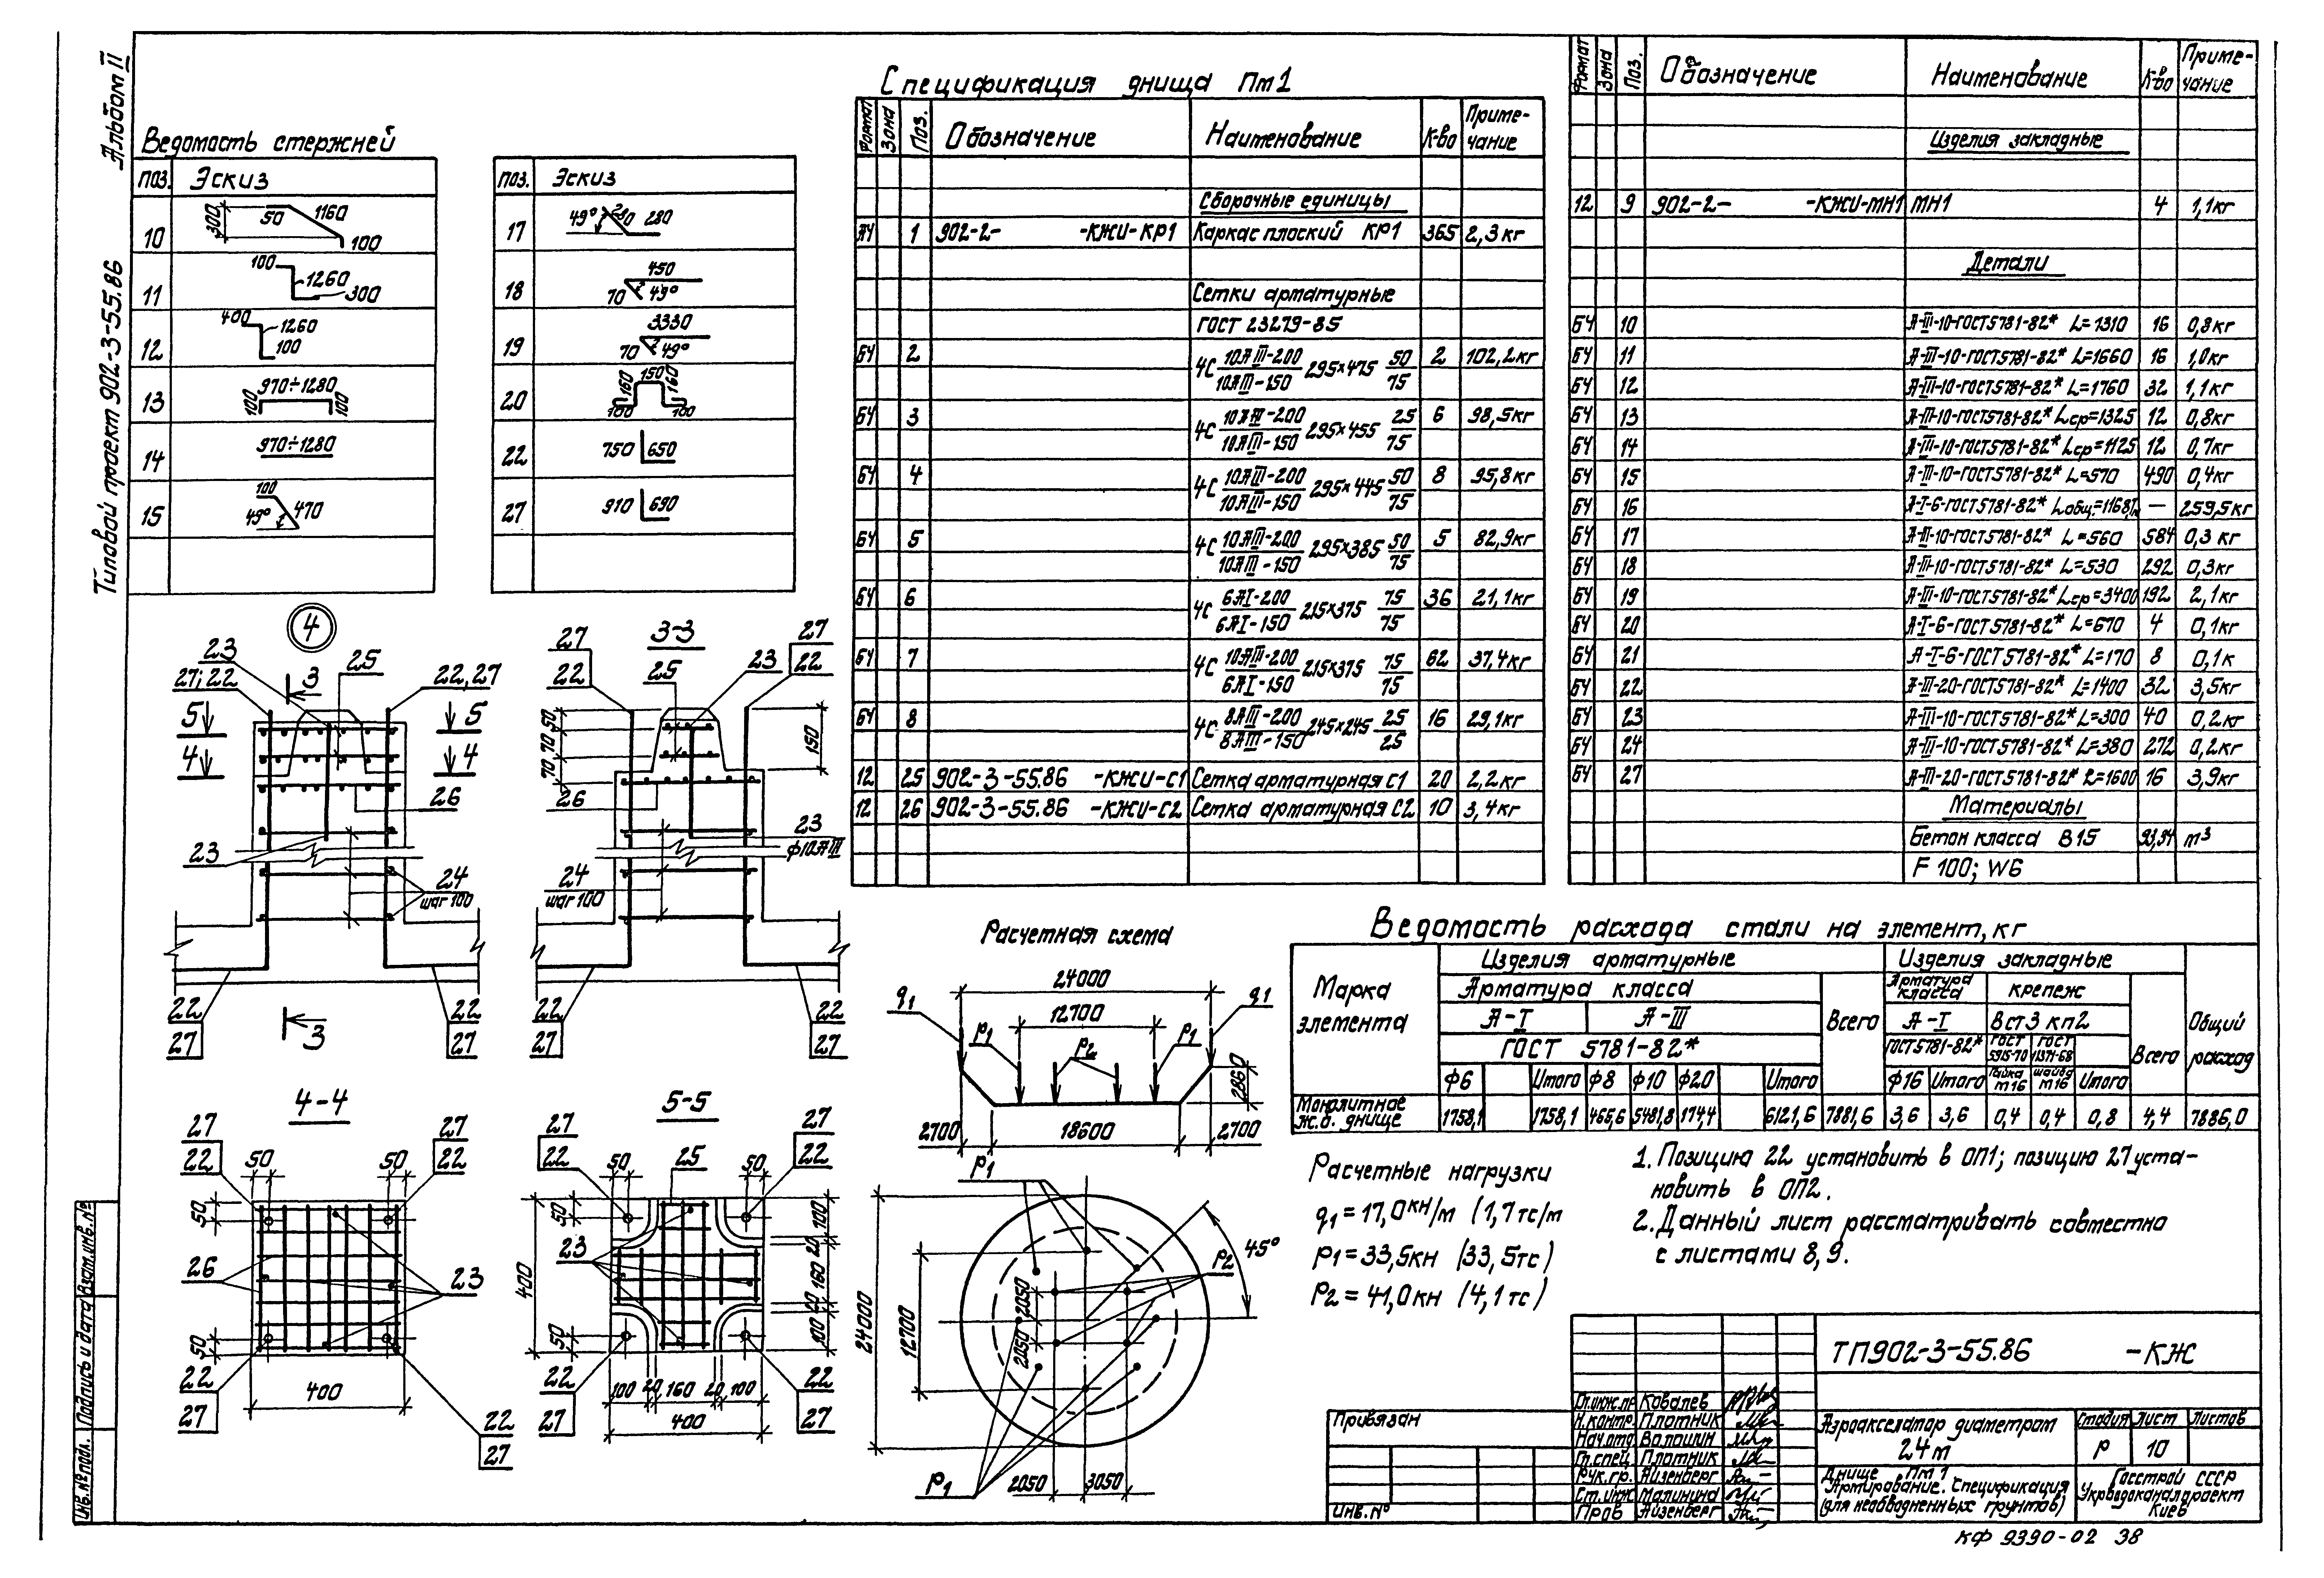 Альбом II
Типовой проект 902-3-55.86
Ведомость стержней
Поз. Эскиз
10 300 50 1160 100
11 100 1260 300
12 400 1260 100
13 100 970÷1280 100
14 970÷1280
15 100 49° 470
Поз. Эскиз
17 49° 280 280
18 450 70 49°
19 3330 70 49°
20 160 150 160 100 100
22 750 650
27 910 690
Спецификация днища Пм1
Формат Зона Поз. Обозначение Наименование К-во Приме-
чание
Сборочные единицы
А4 1 902-2- -КЖИ-КР1 Каркас плоский КР1 365 2,3кг
Сетки арматурные
ГОСТ 23279-85
БЧ 2 4С 10АIII-200/10АIII-150 295×475 50/75 2 102,2кг
БЧ 3 4С 10АIII-200/10АIII-150 295×455 25/75 6 98,5кг
БЧ 4 4С 10АIII-200/10АIII-150 295×445 50/75 8 95,8кг
БЧ 5 4С 10АIII-200/10АIII-150 295×385 50/75 5 82,9кг
БЧ 6 4С 6АI-200/6АI-150 215×375 75/75 36 21,1кг
БЧ 7 4С 10АIII-200/6АI-150 215×375 75/75 62 37,4кг
БЧ 8 4С 8АIII-200/8АIII-150 245×245 25/25 16 29,1кг
12 25 902-3-55.86 -КЖИ-С1 Сетка арматурная С1 20 2,2кг
12 26 902-3-55.86 -КЖИ-С2 Сетка арматурная С2 10 3,4кг
Формат Зона Поз. Обозначение Наименование К-во Приме-
чание
Изделия закладные
12 9 902-2- -КЖИ-МН1 МН1 4 1,1кг
Детали
БЧ 10 А-III-10-ГОСТ5781-82* L=1310 16 0,8кг
БЧ 11 А-III-10-ГОСТ5781-82* L=1660 16 1,0кг
БЧ 12 А-III-10-ГОСТ5781-82* L=1760 32 1,1кг
БЧ 13 А-III-10-ГОСТ5781-82* Lср=1325 12 0,8кг
БЧ 14 А-III-10-ГОСТ5781-82* Lср=1125 12 0,7кг
БЧ 15 А-III-10-ГОСТ5781-82* L=570 490 0,4кг
БЧ 16 А-I-6-ГОСТ5781-82* Lобщ= — 259,5кг
БЧ 17 А-III-10-ГОСТ5781-82* L=560 584 0,3 кг
БЧ 18 А-III-10-ГОСТ5781-82* L=530 292 0,3кг
БЧ 19 А-III-10-ГОСТ5781-82* Lср=3400 192 2,1кг
БЧ 20 А-I-6-ГОСТ5781-82* L=670 4 0,1кг
БЧ 21 А-I-6-ГОСТ5781-82* L=170 8 0,1к
БЧ 22 А-III-20-ГОСТ5781-82* L=1400 32 3,5кг
БЧ 23 А-III-10-ГОСТ5781-82* L=300 40 0,2кг
БЧ 24 А-III-10-ГОСТ5781-82* L=380 272 0,2кг
БЧ 27 А-III-20-ГОСТ5781-82* L=1600 16 3,9кг
Материалы
Бетон класса В15 м³
F 100; W6
4
23 25
27;22 3 22,27
5 5
4 4
26
23
24
шаг 100
22 22
27 27
3
3-3
27 27
22 25 23 22
50 70 70 150
26
23
ф10АIII
24
шаг 100
22 22
27 27
4-4
27 27
22 50 50 22
50
26 23
50
22 400
27 22
27
5-5
27 27
22 50 25 50 22
50 100
23 20
400 160
20
50 100
22 100 20 160 20 100 22
27 400 27
Расчетная схема
24000
q1 12700 q1
P1 P2 P1
2860
2700 18600 2700
P1
45°
P2
24000 12700 2050 2050
P1 2050 3050
Ведомость расхода стали на элемент, кг
Марка элемента Изделия арматурные Изделия закладные Общий расход
Арматура класса Всего Арматура класса крепеж Всего
А-I А-III А-I ВСт3 кп2
ГОСТ 5781-82* ГОСТ5781-82* ГОСТ 5915-70 ГОСТ 11371-68
ф6 Итого ф8 ф10 ф20 Итого ф16 Итого гайка М16 шайба М16 Итого
Монолитное ж.б. днище 1758,1 1758,1 465,6 5481,8 174,4 6121,6 7881,6 3,6 3,6 0,4 0,4 0,8 4,4 7886,0
Расчетные нагрузки
q1=17,0кн/м (1,7тс/м
P1=33,5кн (33,5тс)
P2=41,0кн (4,1тс)
1. Позицию 22 установить в ОП1; позицию 27 уста-
новить в ОП2.
2. Данный лист рассматривать совместно
с листами 8,9.
ТП902-3-55.86 -КЖ
Гл.инж.пр Ковалев
Н.контр. Плотник
Нач.отд Волошин
Гл.спец Плотник
Рук.гр. Айзенберг
Ст.инж Малинина
Пров Айзенберг
Аэроакселатор диаметром
24м
Стадия Лист Листов
Р 10
Днище Пм1
Армирование. Спецификация
(для необводненных грунтов)
Госстрой СССР
Укрводоканалпроект
Киев
Привязан
Инв.№
Инв.№подл. Подпись и дата Взам.инв.№
КФ 9390-02 38